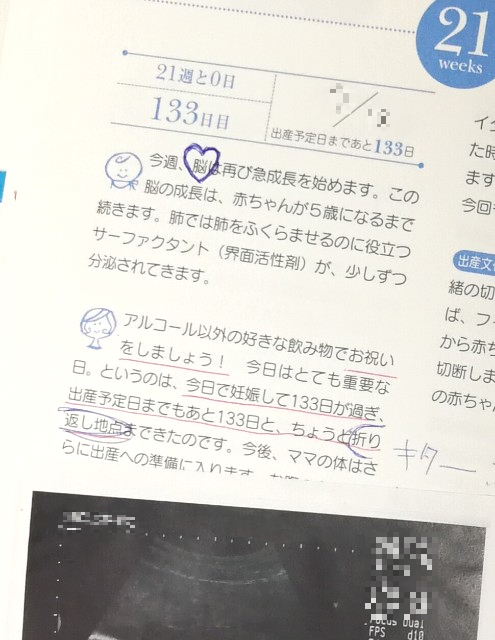 21
weeks
21週と0日
133日目
出産予定日まであと133日
今週、脳は再び急成長を始めます。この
脳の成長は、赤ちゃんが5歳になるまで
続きます。肺では肺をふくらませるのに役立つ
サーファクタント（界面活性剤）が、少しずつ
分泌されてきます。
アルコール以外の好きな飲み物でお祝い
をしましょう！ 今日はとても重要な
日。というのは、今日で妊娠して133日が過ぎ、
出産予定日までもあと133日と、ちょうど折り
返し地点まできたのです。今後、ママの体はさ
らに出産への準備に入ります。
キター
イ
た時
ます
今回
出産文
緒の切
ば、フ
から赤ち
切断しま
の赤ちゃ
Focus Dual
FPS d10